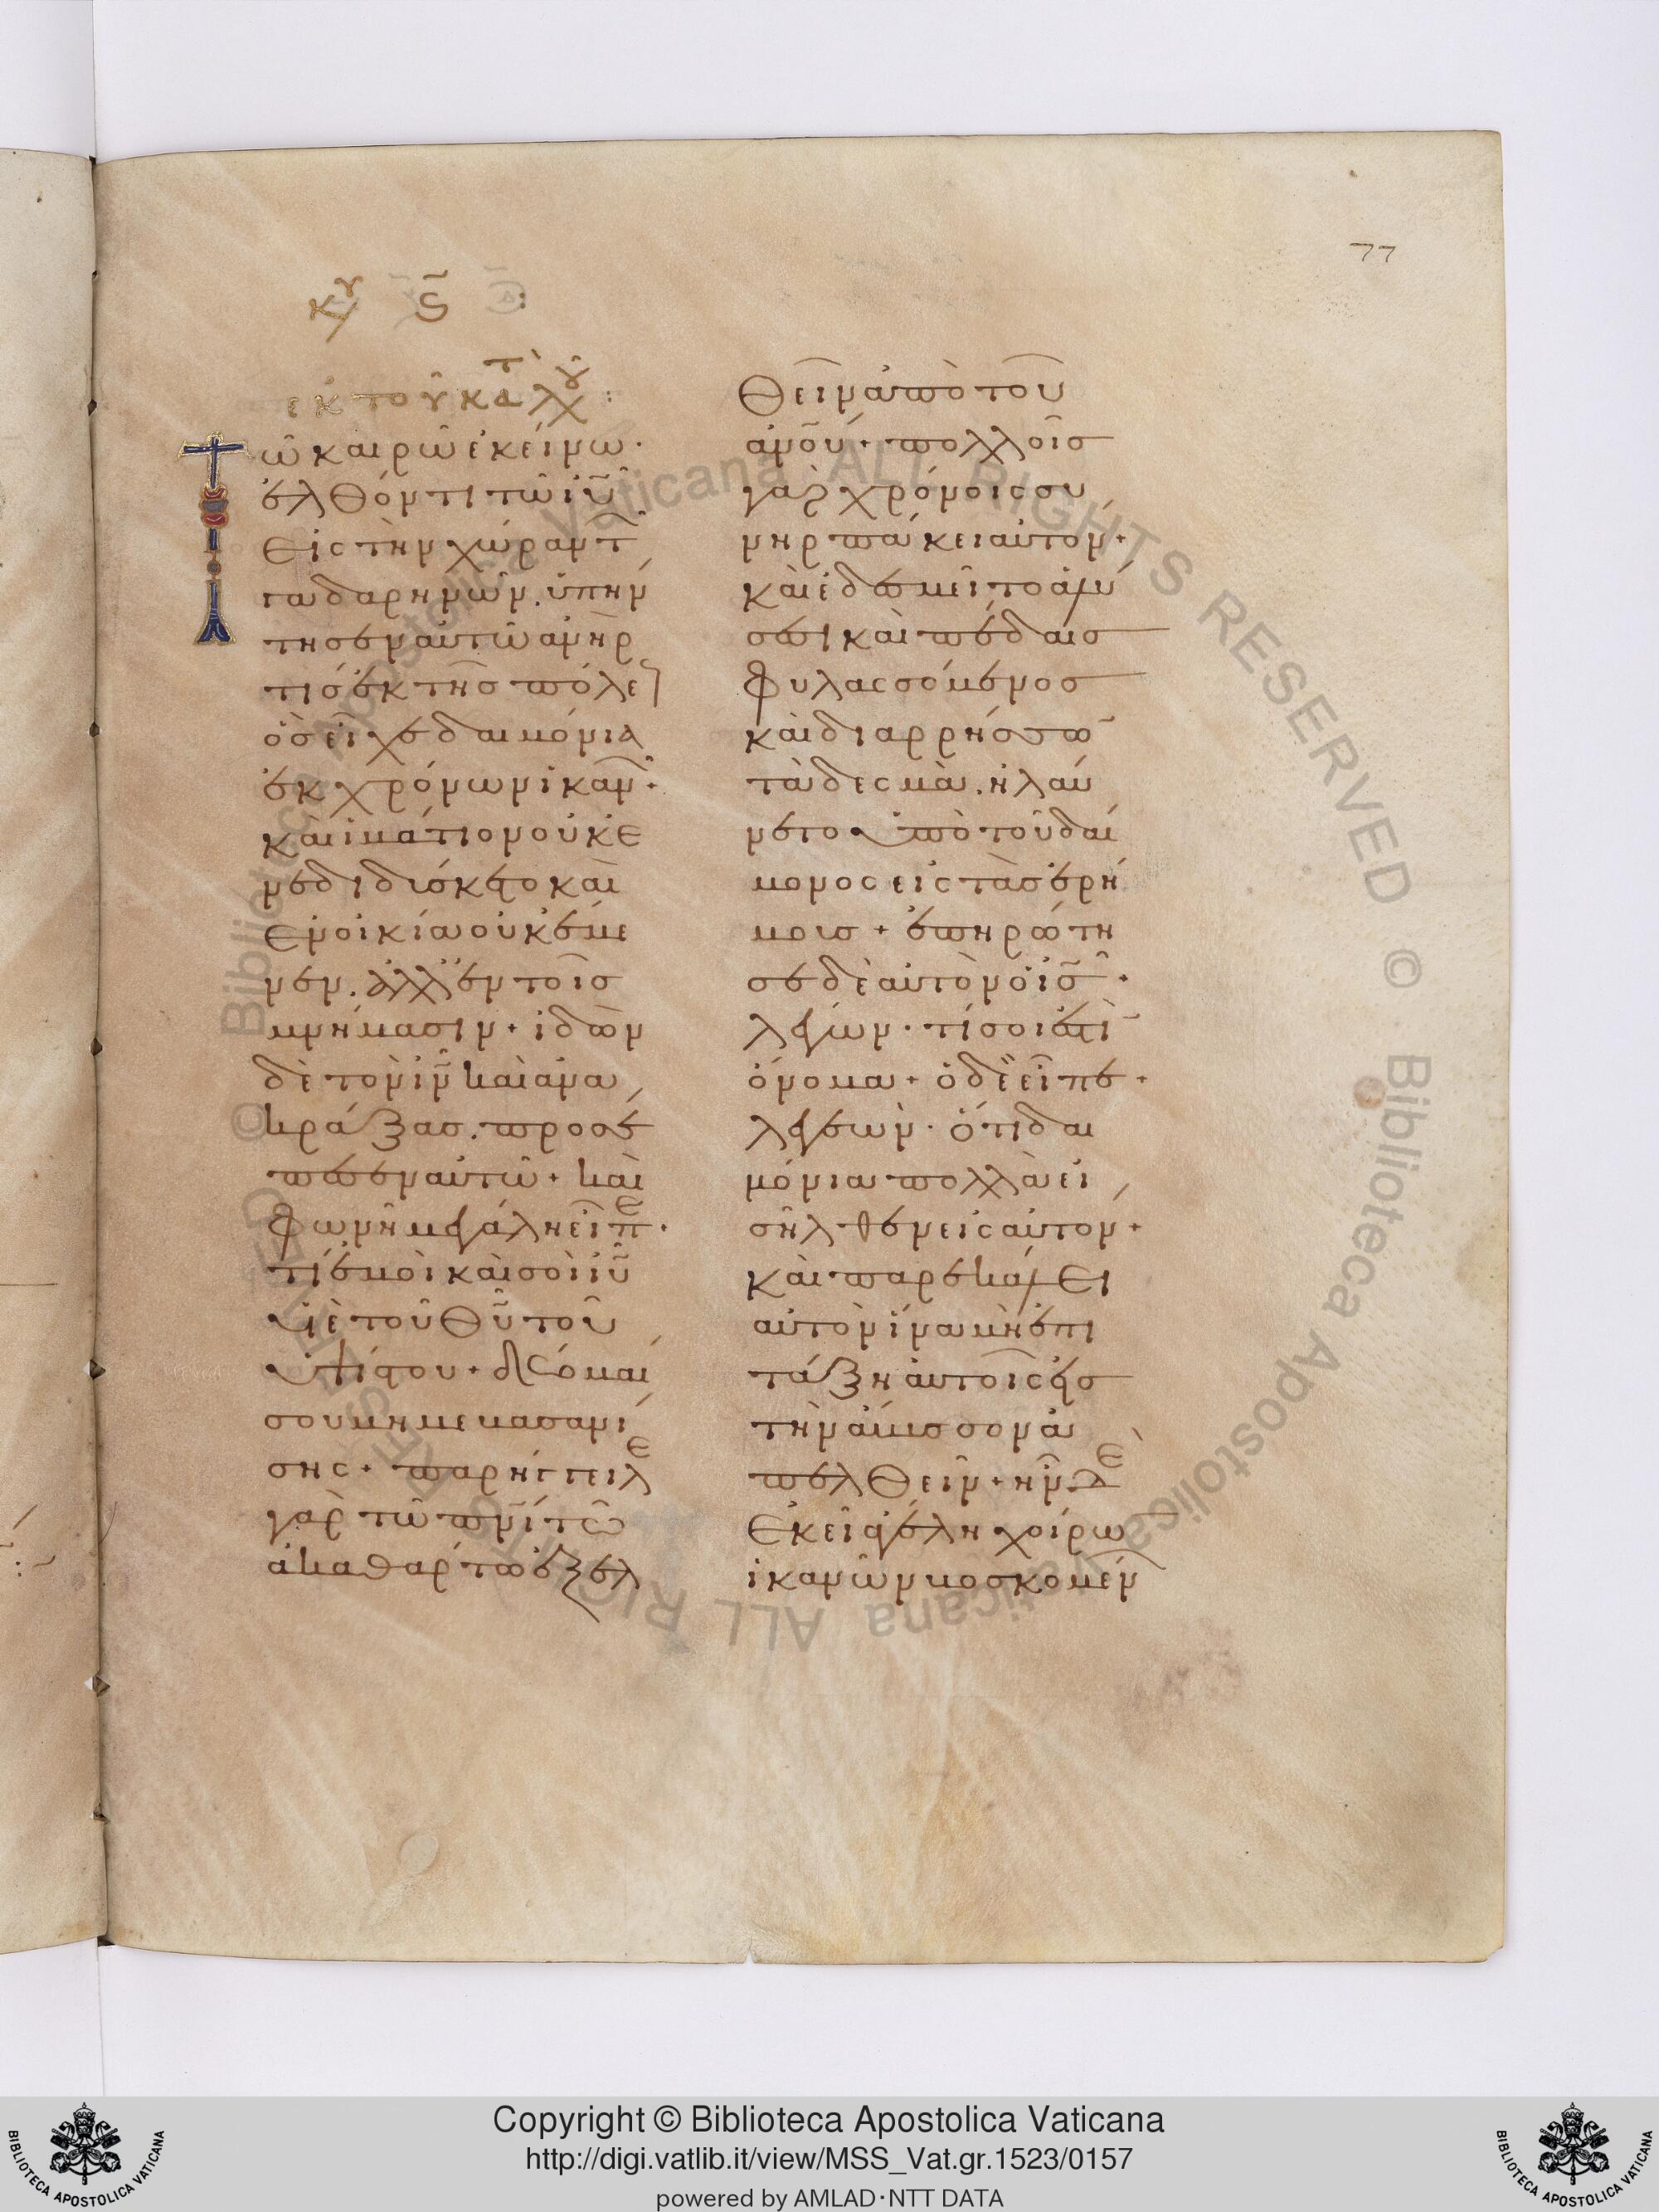 77
κυ ϛ̄ :
ἐκ τοῦ κατὰ λχ :
Τῶ καιρῶ ἐκείνω·
ἐλθόντι τῶ ἰῦ
εἰς τὴν χώραν τ
γαδαρηνῶν. ὑπήν
τησεν αὐτῶ ἀνὴρ
τισ ἐκ τῆσ πόλε
ὃσ εἶχε δαιμόνια
ἐκ χρόνων ἱκαν·
καὶ ἱμάτιον οὐκ ἐ
νεδιδύσκετο καὶ
ἐν οἰκία οὐκ ἔμε
νεν. ἀλλ' ἐν τοῖσ
μνήμασιν + ἰδὼν
δὲ τὸν ἰν καὶ ἀνα
κράξασ. προσέ
πεσεν αὐτῶ + καὶ
φωνῆ μεγάλη εἶπε·
τί ἐμοὶ καὶ σοὶ ἰῦ
υἱὲ τοῦ θῦ τοῦ
ὑψίστου + δέομαί
σου μή με βασανί
σης + παρήγγειλε
γὰρ τῶ πνι τῶ
ἀκαθάρτω ἐξελ
θεῖν ἀπὸ τοῦ
ἀνου + πολλοῖσ
γὰρ χρόνοις συ
νηρπάκει αὐτόν +
καὶ ἐδεσμεῖτο ἁλύ
σεσι καὶ πέδαισ
φυλασσόμενοσ
καὶ διαρρήσσω
τὰ δεσμὰ. ἠλαύ
νετο ὑπὸ τοῦ δαί
μονος εἰς τὰσ ἐρή
μουσ + ἐπηρώτη
σε δὲ αὐτὸν ὁ ισ +
λέγων · τί σοι ἐστὶ
ὄνομα + ὁ δὲ εἶπε +
λεγεὼν · ὅτι δαι
μόνια πολλὰ εἰ
σῆλθεν εἰς αὐτον +
καὶ παρεκάλει
αὐτὸν ἵνα μὴ ἐπι
τάξη αὐτοῖς εἰσ
τὴν ἄβυσσον ἀ
πελθεῖν + ἦν δὲ
ἐκεῖ ἀγέλη χοίρω
ἱκανῶν βοσκομέν
Copyright © Biblioteca Apostolica Vaticana
http://digi.vatlib.it/view/MSS_Vat.gr.1523/0157
powered by AMLAD·NTT DATA